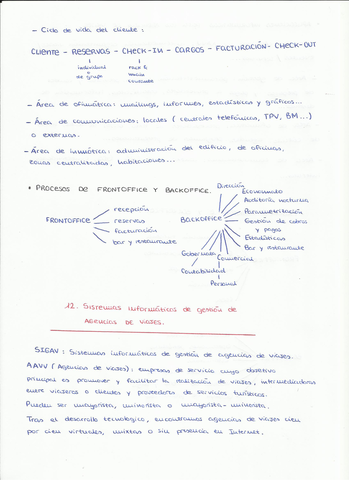 - Ciclo de vida del cliente:
CLIENTE - RESERVAS - CHECK-IN - CARGOS - FACTURACIÓN - CHECK-OUT
individual
o
de grupo
- Área de ofimática: mailings, informes, estadísticas y gráficos...
- Área de comunicaciones: locales (centrales telefónicas, TPV, BM...)
o externas.
- Área de inmótica: administración del edificio, de oficinas,
zonas centralizadas, habitaciones...
• PROCESOS DE FRONTOFFICE Y BACKOFFICE.
FRONTOFFICE
recepción
reservas
facturación
bar y restaurante
BACKOFFICE
Dirección
Economato
Auditoría nocturna
Parametrización
Gestión de cobros
y pagos
Estadísticas
Bar y restaurante
Comercial
Gobernanta
Contabilidad
Personal
12. Sistemas informáticos de gestión de
AGENCIAS DE VIAJES.
SIGAV: Sistemas informáticos de gestión de agencias de viajes.
AAVV (Agencias de viajes): empresas de servicio cuyo objetivo
principal es promover y facilitar la realización de viajes, intermediadoras
entre viajeros o clientes y proveedores de servicios turísticos.
Pueden ser mayorista, minorista o mayorista-minorista.
Tras el desarrollo tecnológico, encontramos agencias de viajes cien
por cien virtuales, mixtas o sin presencia en Internet.